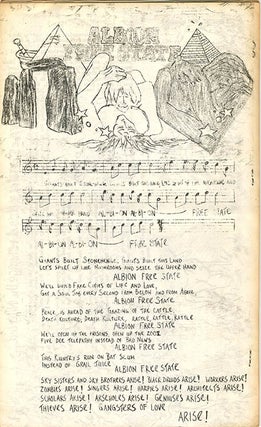 ALBION
FREE STATE
GIANTS BUILT STONEHENGE GIANTS BUILT THIS LAND LET'S
FREE STATE
AL-BI-ON AL-BI-ON FREE STATE
GIANTS BUILT STONEHENGE, GIANTS BUILT THIS LAND
LET'S SPURT UP LIKE MUSHROOMS AND SEIZE THE UPPER HAND
ALBION FREE STATE
WE'LL BUILD FREE CITIES OF LIFE AND LOVE
GET A SOUL THIS EVERY SECOND FROM BELOW AND FROM ABOVE
ALBION FREE STATE
PEACE IS AHEAD OF THE TRADING OF THE CATTLE
DEATH KULTURE, DEATH KULTURE, RATTLE, RATTLE, RATTLE
ALBION FREE STATE
WE'LL OPEN UP THE PRISONS, OPEN UP THE ZOOS
FIVE DEE TELEPATHY INSTEAD OF BAD NEWS
ALBION FREE STATE
THIS KUNTREY'S RUN ON RAT SCUM
INSTEAD OF GRAIL JUICE
ALBION FREE STATE
SKY SISTERS AND SKY BROTHERS ARISE! DIRER DRUIDS ARISE! WORKERS ARISE!
ZOMBIES ARISE! SINGERS ARISE! HARPIES ARISE! ARCHITECTS ARISE!
SCHOLARS ARISE! ARSEHOLES ARISE! GENIUSES ARISE!
THIEVES ARISE! GANGSTERS OF LOVE
ARISE!